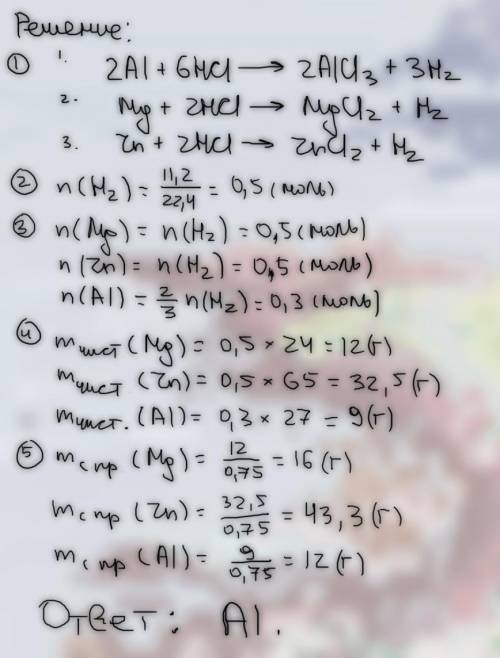 Решение:
① 1. 2Al + 6HCl ⟶ 2AlCl₃ + 3H₂
2. Mg + 2HCl ⟶ MgCl₂ + H₂
3. Zn + 2HCl ⟶ ZnCl₂ + H₂
② n(H₂) = 11,2/22,4 = 0,5 (моль)
③ n(Mg) = n(H₂) = 0,5 (моль)
n(Zn) = n(H₂) = 0,5 (моль)
n(Al) = 2/3 n(H₂) = 0,3 (моль)
④ mчист (Mg) = 0,5 × 24 = 12 (г)
mчист (Zn) = 0,5 × 65 = 32,5 (г)
mчист. (Al) = 0,3 × 27 = 9 (г)
⑤ mс пр (Mg) = 12/0,75 = 16 (г)
mс пр (Zn) = 32,5/0,75 = 43,3 (г)
mс пр (Al) = 9/0,75 = 12 (г)
Ответ: Al.